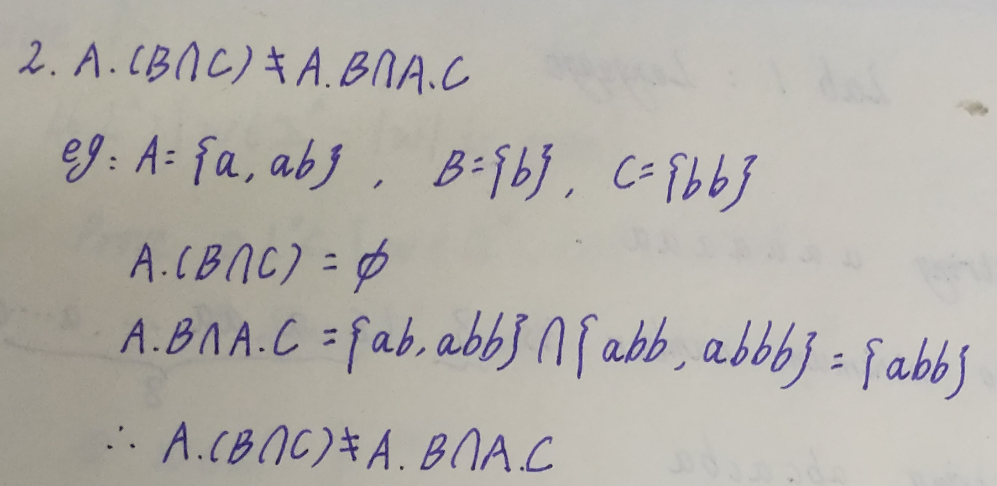 2. A.(B∩C) ≠ A.B∩A.C
eg: A= {a, ab} , B={b}, C={bb}
A.(B∩C) = ϕ
A.B∩A.C = {ab, abb} ∩ {abb, abbb} = {abb}
∴ A.(B∩C) ≠ A.B∩A.C